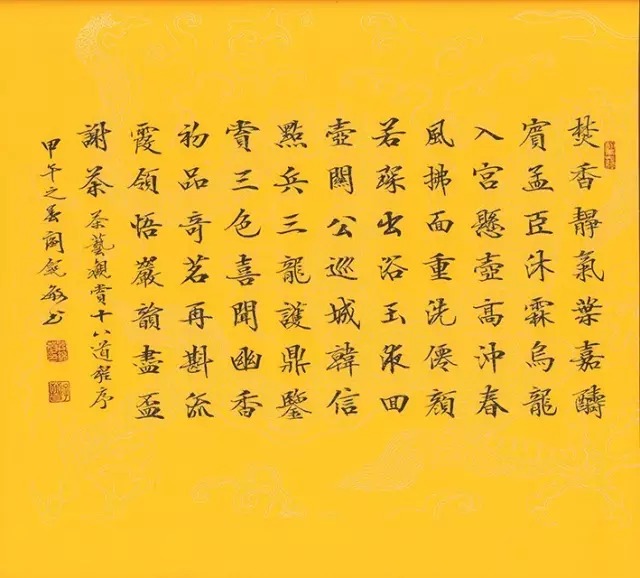 焚香靜氣葉嘉醻
賓孟臣沐霖烏龍
入宮懸壺高沖春
風拂面重洗僊顏
若琛出浴玉液回
壺關公巡城韓信
點兵三龍護鼎鑒
賞三色喜聞幽香
初品奇茗再斟流
霞領悟巖韻盡盃
謝茶 茶藝觀賞十八道程序
甲午之春